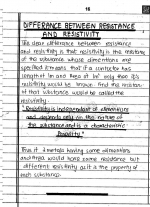 18
DIFFERANCE BETWEEN RESISTANCE
AND RESISTIVITY
The clear difference between resistance
and resistivity is that resistivity is the resistance
of the substance whose dimentions are
specified it means that if a conductor has
length of 1m and area of 1m² only then it's
resistivity would be known and the resistance
of that substance would be called the
resistivity.
"Resistivity is independent of dimentions
and depends only on the nature of
the substance and is a characteristic
Property."
Thus if 2 metals having same dimentions
and area would have same resistance but
different resistivity as it is the property of
each substance.